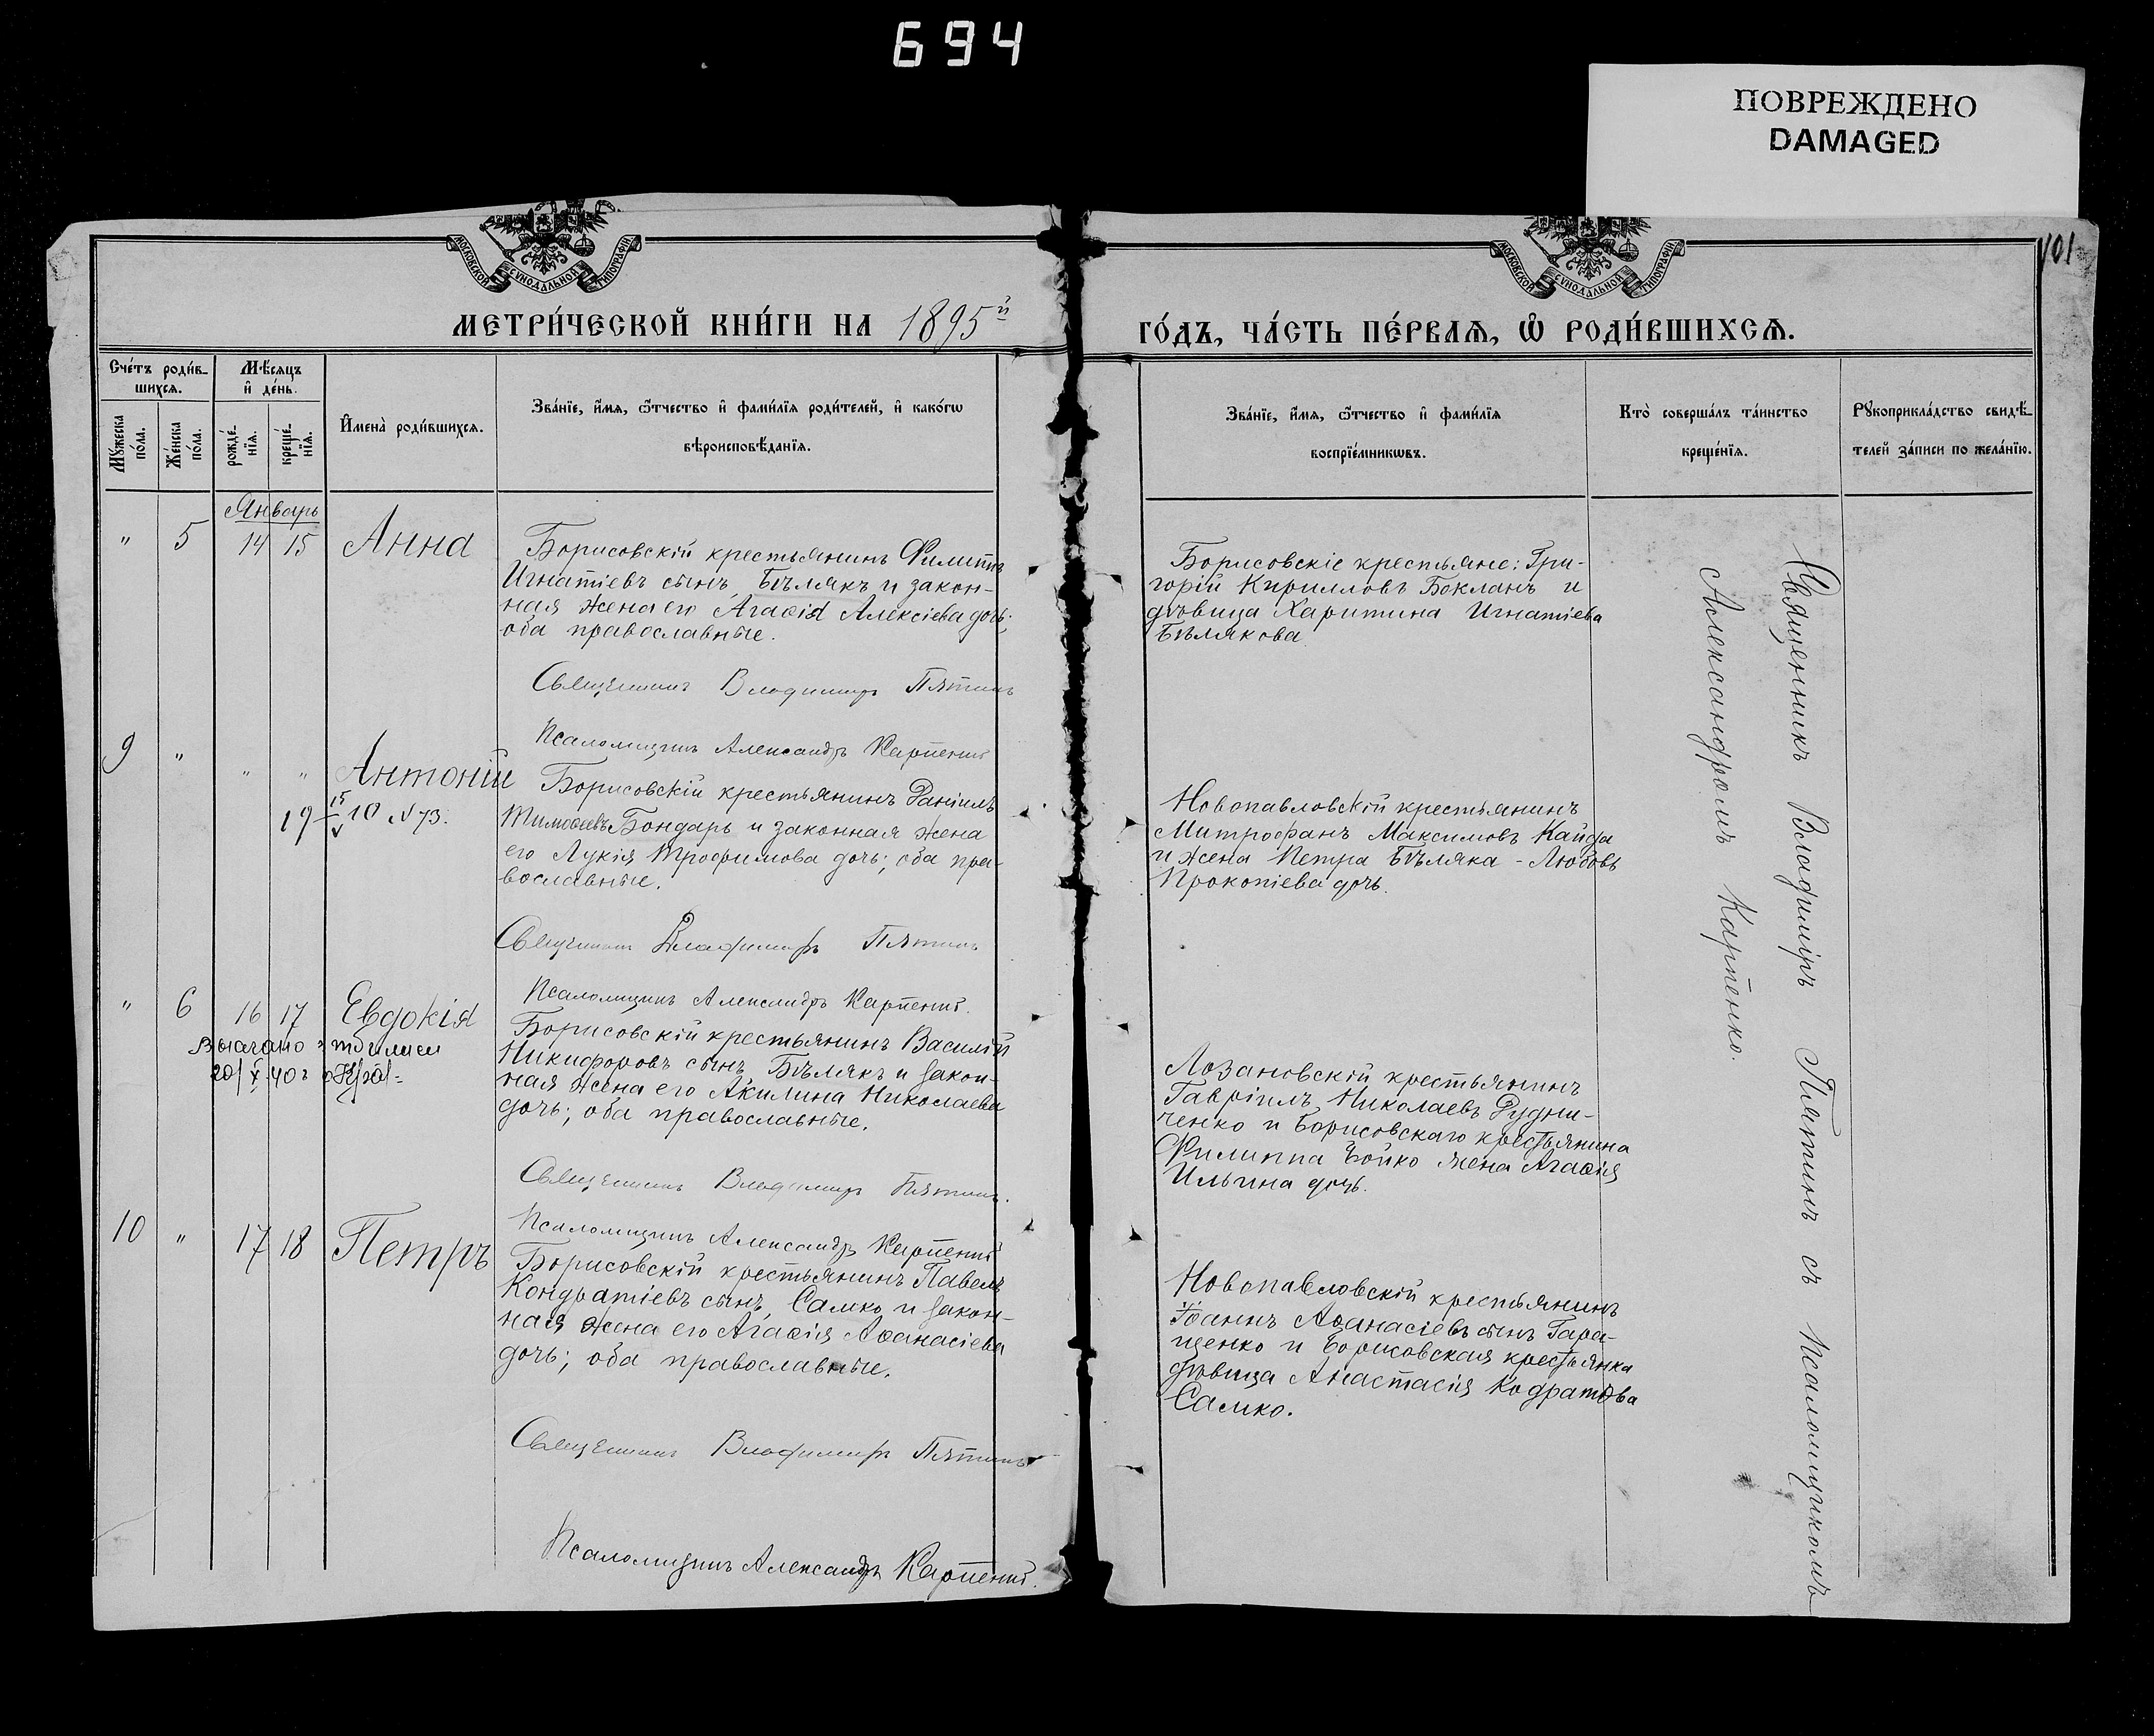 694
ПОВРЕЖДЕНО
DAMAGED
101
МОСКОВСКОЙ СѴНОДАЛЬНОЙ ТИПОГРАФІИ
МОСКОВСКОЙ СѴНОДАЛЬНОЙ ТИПОГРАФІИ
МЕТРИ́ЧЕСКОЙ КНИ́ГИ НА 1895й
ГО́ДЪ, ЧА́СТЬ ПЕ́РВАѦ, Ѡ҆ РОДИ́ВШИХСѦ.
Сче́тъ роди́в-
шихсѧ.
Мѣ́сѧцъ
и҆ де́нь.
Мꙋ́жеска
по́ла.
Же́нска
по́ла.
рожде́-
нїѧ.
креще́-
нїѧ.
И҆мена̀ роди́вшихсѧ.
Зва́нїе, и҆́мѧ, ѻ҆́тчество и҆ фами́лїѧ роди́телей, и҆ како́гѡ
вѣроисповѣ́данїѧ.
Зва́нїе, и҆́мѧ, ѻ҆́тчество и҆ фами́лїѧ
воспрїе́мникѡвъ.
Кто̀ соверша́лъ та́инство
креще́нїѧ.
Рꙋкоприкла́дство свидѣ́-
телей за́писи по жела́нїю.
Январь
" 5 14 15 Анна
Борисовскій крестьянинъ Филиппъ
Игнатіевъ сынъ Бѣлякъ и закон-
ная жена его Агаѳія Алексіева дочь;
оба православные.
Священникъ Владимиръ Пятинъ
Псаломщикъ Александръ Карпенко
Борисовскіе крестьяне: Гри-
горій Кирилловъ Бокланъ и
дѣвица Харитина Игнатіева
Бѣлякова
9 " " " Антоній
19 15/V 10 N 73.
Борисовскій крестьянинъ Даніилъ
Тимоѳеевъ Бондарь и законная жена
его Лукія Трофимова дочь; оба пра-
вославные.
Священникъ Владимиръ Пятинъ
Псаломщикъ Александръ Карпенко.
Новопавловскій крестьянинъ
Митрофанъ Максимовъ Кайда
и жена Петра Бѣляка - Любовь
Прокопіева дочь.
" 6 16 17 Евдокія
20/X 40 г
Борисовскій крестьянинъ Василій
Никифоровъ сынъ Бѣлякъ и закон-
ная жена его Акилина Николаева
дочь; оба православные.
Священникъ Владимиръ Пятинъ.
Псаломщикъ Александръ Карпенко
Лозановскій крестьянинъ
Гавріилъ Николаевъ Рудни-
ченко и Борисовскаго крестьянина
Филиппа Бойко жена Агаѳія
Ильина дочь.
10 " 17 18 Петръ
Борисовскій крестьянинъ Павелъ
Кондратіевъ сынъ Самко и закон-
ная жена его Агаѳія Аѳанасіева
дочь; оба православные.
Священникъ Владимиръ Пятинъ
Псаломщикъ Александръ Карпенко.
Новопавловскій крестьянинъ
Іоаннъ Аѳанасіевъ сынъ Гара-
щенко и Борисовская крестьянка
дѣвица Анастасія Кодратова
Самко.
Священникъ Владиміръ Пятинъ съ Псаломщикомъ
Александромъ Карпенко.